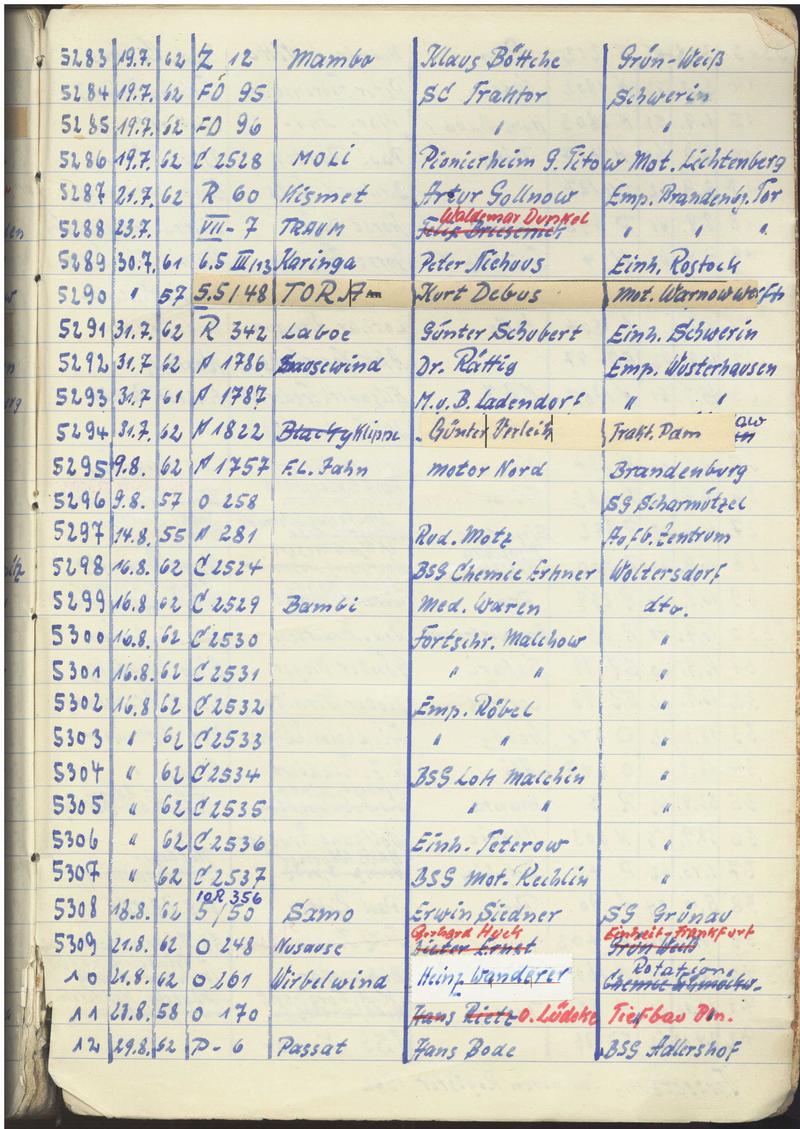 5283 19.7. 62 Z 12 Mambo Klaus Böttche Grün-Weiß
5284 19.7. 62 FD 95 SC Traktor Schwerin
5285 19.7. 62 FD 96 " "
5286 19.7. 62 C 2528 MOLI Pionierheim G. Titow Mot. Lichtenberg
5287 21.7. 62 R 60 Kismet Artur Gollnow Emp. Brandenbg. Tor
Waldemar Dunkel
5288 23.7. VII-7 TRAUM " " "
5289 30.7. 61 6.5 III/13 Karinga Peter Niehuus Einh. Rostock
5290 " 57 5.5/48 TORA Kurt Debus Mot. Warnowwerft
5291 31.7. 62 R 342 Laboe Günter Schubert Einh. Schwerin
5292 31.7 62 A 1786 Sausewind Dr. Rättig Emp. Wusterhausen
5293 31.7 61 A 1787 M.u.B. Ladendorf " "
5294 31.7. 62 A 1822 Blacky Klippe Günter Verleih Trakt. Dam
5295 9.8. 62 A 1757 F.L. Jahn Motor Nord Brandenburg
5296 9.8. 57 O 258 SG Scharmützel
5297 14.8. 55 A 281 Rud. Motz Aufb. Zentrum
5298 16.8. 62 C 2524 BSG Chemie Erkner Woltersdorf
5299 16.8 62 C 2529 Bambi Med. Waren dto.
5300 16.8. 62 C 2530 Fortschr. Malchow "
5301 16.8. 62 C 2531 " " "
5302 16.8 62 C 2532 Emp. Röbel "
5303 " 62 C 2533 " " "
5304 " 62 C 2534 BSG Lok Malchin "
5305 " 62 C 2535 " " "
5306 " 62 C 2536 Einh. Teterow "
5307 " 62 C 2537 BSG Mot. Rechlin "
10R 356
5308 18.8. 62 5/50 Samo Erwin Siedner SG Grünau
Gerhard Huck Einheit-Frankfurt
5309 21.8. 62 O 248 Nusause Dieter Ernst Grün Weiß
Rotation
10 21.8. 62 O 201 Wirbelwind Heinz Wanderer Chemie
11 23.8. 58 O 170 Hans Rietz O. Lüdcke Tiefbau Bln.
12 29.8. 62 P-6 Passat Hans Bode BSG Adlershof